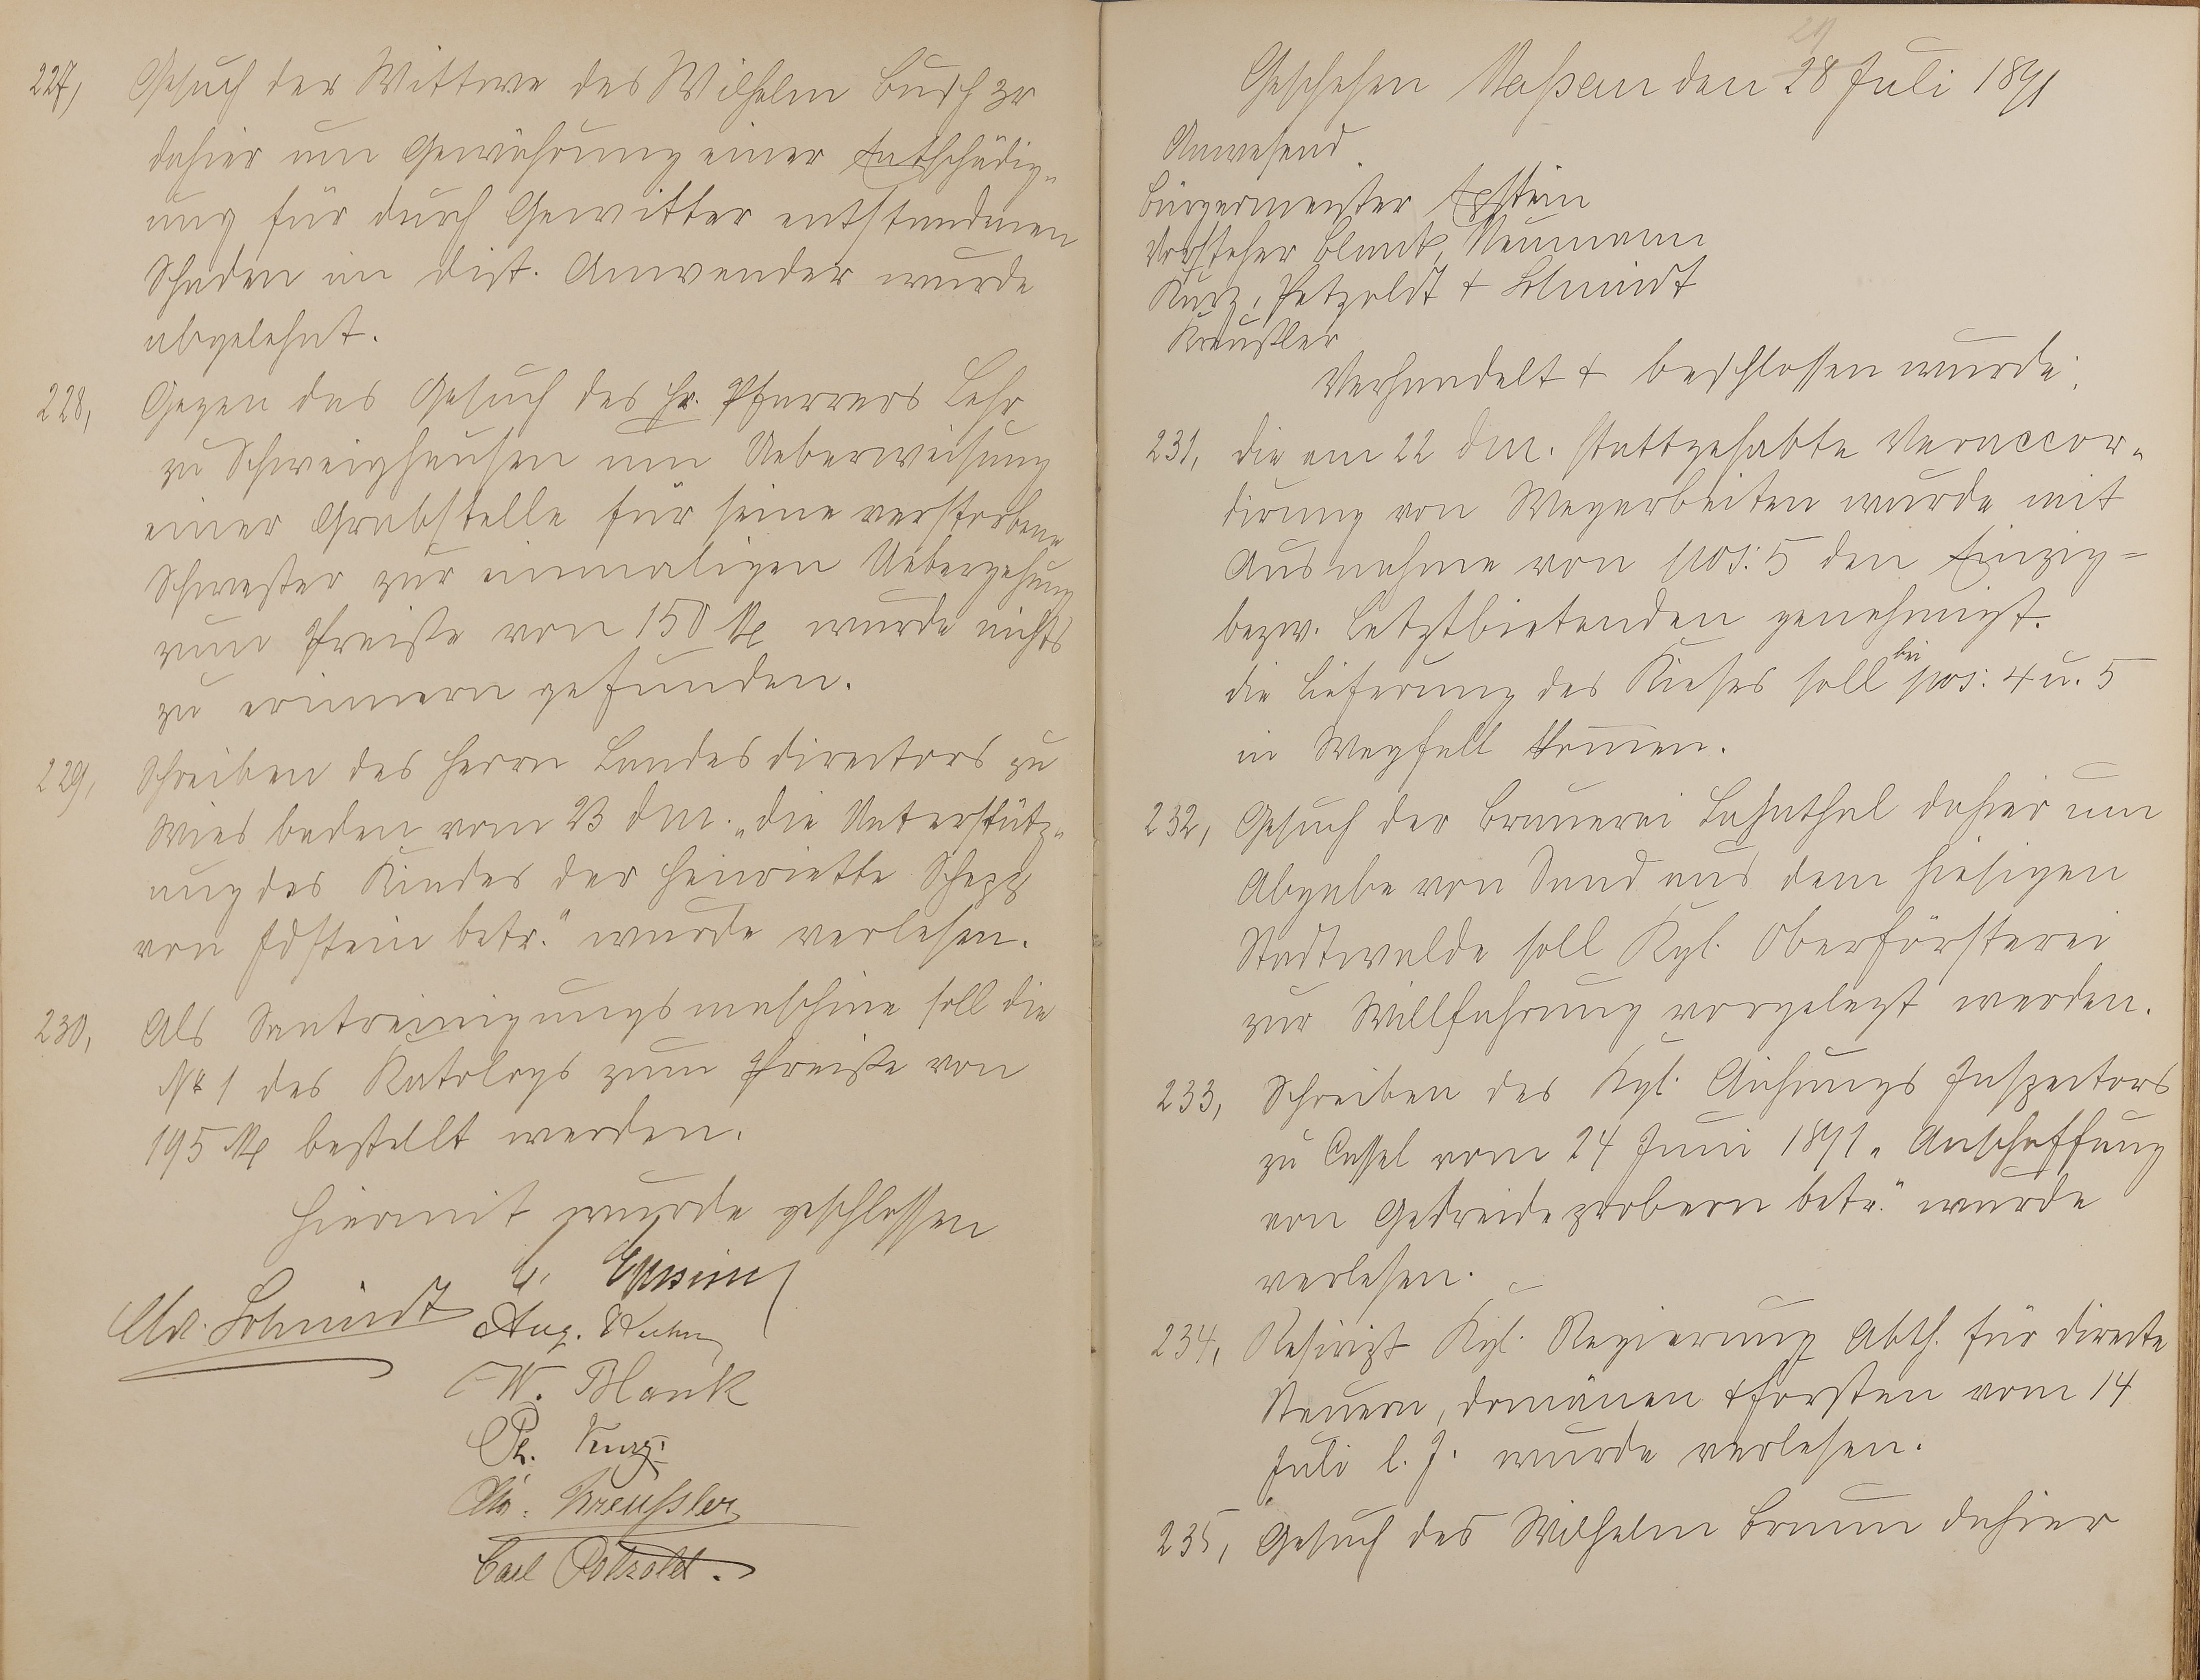 227, Gesuch der Wittwe des Wilhelm Busch 3r
dahier um Gewährung einer Entschädig-
ung für durch Gewitter entstandnen
Schaden im Dist. Anwender wurde
abgelehnt.
228, Gegen das Gesuch des Hr. Pfarrers Lehr
zu Schweighausen um Ueberweisung
einer Grabstelle für seine verstorbene
Schwester zur einmaligen Uebergehung
zum Preiße von 150 M wurde nichts
zu erinnern gefunden.
229, Schreiben des Herrn Landesdirectors zu
Wiesbaden vom 23 dM. "die Unterstütz-
ung des Kindes der Henriette Schapp
von Idstein betr." wurde verlesen.
230, Als Saatreinigungsmaschine soll die
No 1 des Katologs zum Preiße von
195 M bestellt werden.
Hiermit wurde geschlossen
Epstein
Chr. Schmidt Aug.
W. Blank
Ph. Kurz.
Chr. Kreußler
Carl Pötzoldt.
29
Geschehen Naßau den 28 Juli 1891
Anwesend
Bürgermeister Epstein
Vorsteher Blank, Neumann
Kurz, Petzoldt + Schmidt
Kreußler
Verhandelt + beschlossen wurde:
231, die am 22 dM. stattgehabte Veraccor-
dirung von Wegarbeiten wurde mit
Ausnahme von pos: 5 den Einzig-
bezw. Letztbietenden genehmigt.
die Lieferung des Kieses soll bei pos: 4 u. 5
in Wegfall kommen.
232, Gesuch der Brauerei Lahnthal dahier um
Abgabe von Sand aus dem hiesigen
Stadtwalde soll Kgl. Oberförsterei
zur Willfahrung vorgelegt werden.
233, Schreiben des Kgl. Aichungs Inspectors
zu Cassel vom 24 Juni 1891 "Anschaffung
von Getreideprobern betr." wurde
verlesen.
234, Rescript Kgl. Regierung Abth. für directe
Steuern, Domänen + Forsten vom 14
Juli l. J. wurde verlesen.
235, Gesuch des Wilhelm Braun dahier